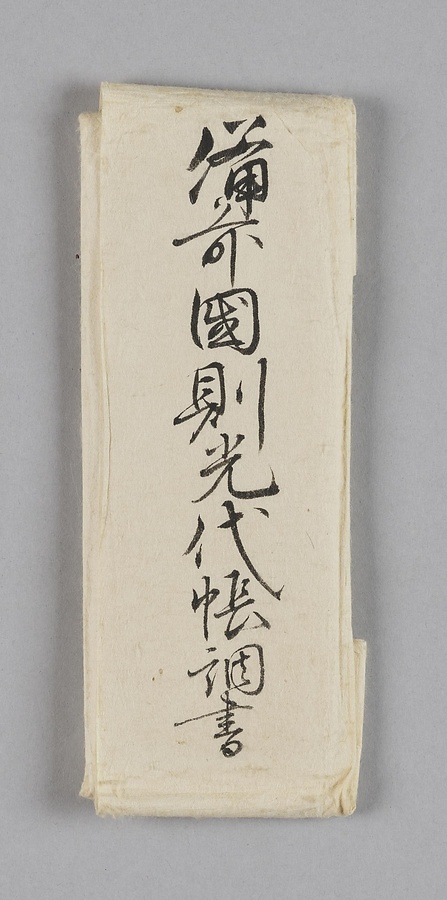 備前國則光代帳調書